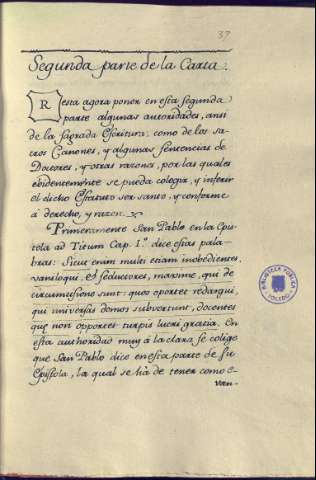 37
Segunda parte de la Carta.
Resta agora poner en esta segunda
parte algunas autoridades, ansi
de la sagrada Escritura: como de los sa-
cros Canones, y algunas sentencias de
Doctores, y otras razones, por las quales
evidentemente se pueda colegir, y inferir
el dicho Estatuto ser santo, y conforme
à derecho, y razon.
Primeramente San Pablo en la Epis-
tola ad Titum Cap. 1.º dice estas pala-
bras: Sicut enim multi etiam inobedientes,
vaniloqui, et seductores, maxime, qui de
circumcisione sunt: quos oportet redargui,
qui universas domos subvertunt, docentes
quę non opportet turpis lucri gratia. En
esta authoridad muy à la clara se colige
que San Pablo dice en esta parte de su
Epistola, la qual se ha de tener como e-
van-
BIBLIOTECA PUBLICA
TOLEDO